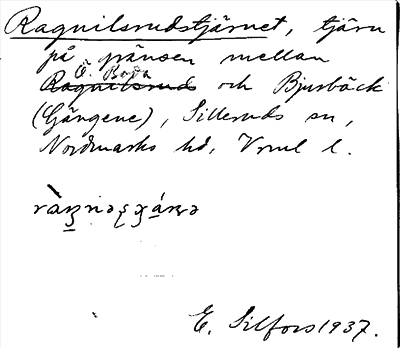 Ragnilsrudstjärnet, tjärn
på gränsen mellan
Ö. Boda
Ragnilsruds och Bjurbäck
(Gängene), Silleruds sn,
Nordmarks hd, Vrml l.
E. Silfors 1937.